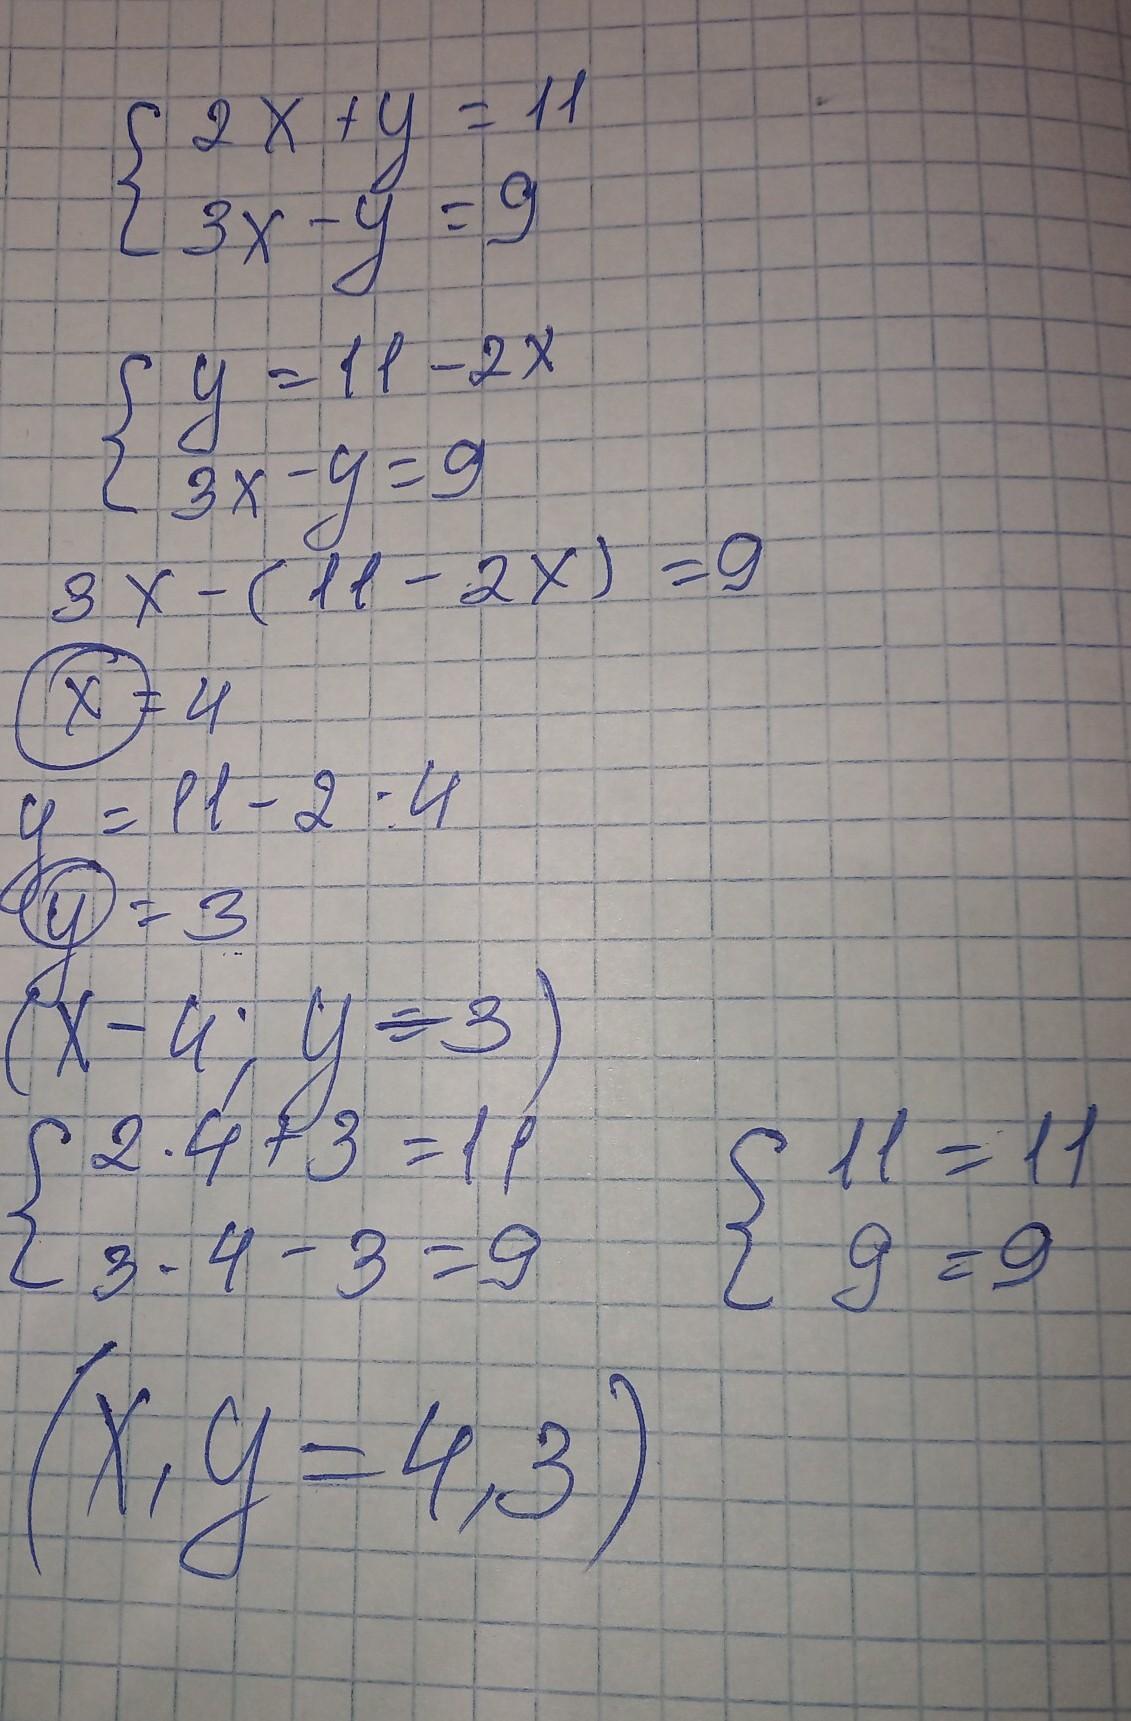 { 2x + y = 11
3x - y = 9
{ y = 11 - 2x
3x - y = 9
3x - (11 - 2x) = 9
x = 4
y = 11 - 2 · 4
y = 3
(x - 4; y = 3)
{ 2 · 4 + 3 = 11 { 11 = 11
3 · 4 - 3 = 9 9 = 9
(x, y = 4, 3)